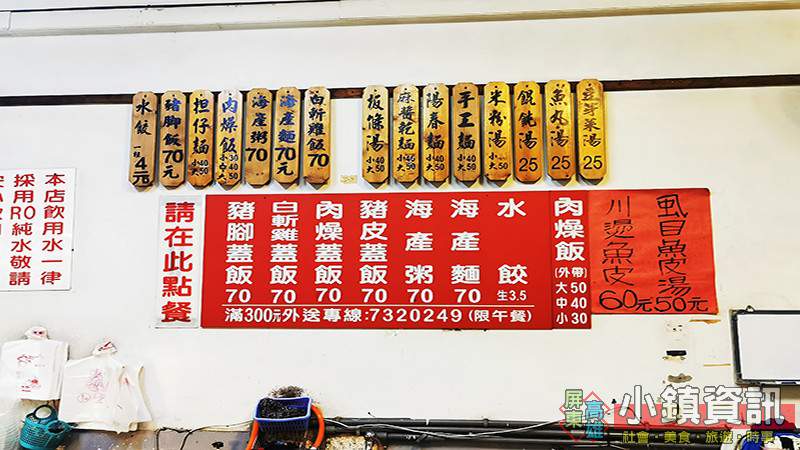 豆芽菜湯 25
魚丸湯 25
餛飩湯 25
米粉湯 小40 大50
手工麵 小40 大50
陽春麵 小40 大50
麻醬乾麵 小40 大50
板條湯 小40 大50
白斬雞飯 70
海產麵 70元
海產粥 70
肉燥飯 小30 中40 大50
担仔麵 小40 大50
豬脚飯 70元
水餃 一粒4元
虱目魚皮湯 50元
川燙魚皮 60元
肉燥飯 (外帶) 大50 中40 小30
水餃 生3.5
海產麵 70
海產粥 70
豬皮蓋飯 70
肉燥蓋飯 70
白斬雞蓋飯 70
豬腳蓋飯 70
滿300元外送專線:7320249(限午餐)
請在此點餐
本店飲用水一律
採用RO純水敬請
屏東
高雄
小鎮資訊
社會·美食·旅遊·時事